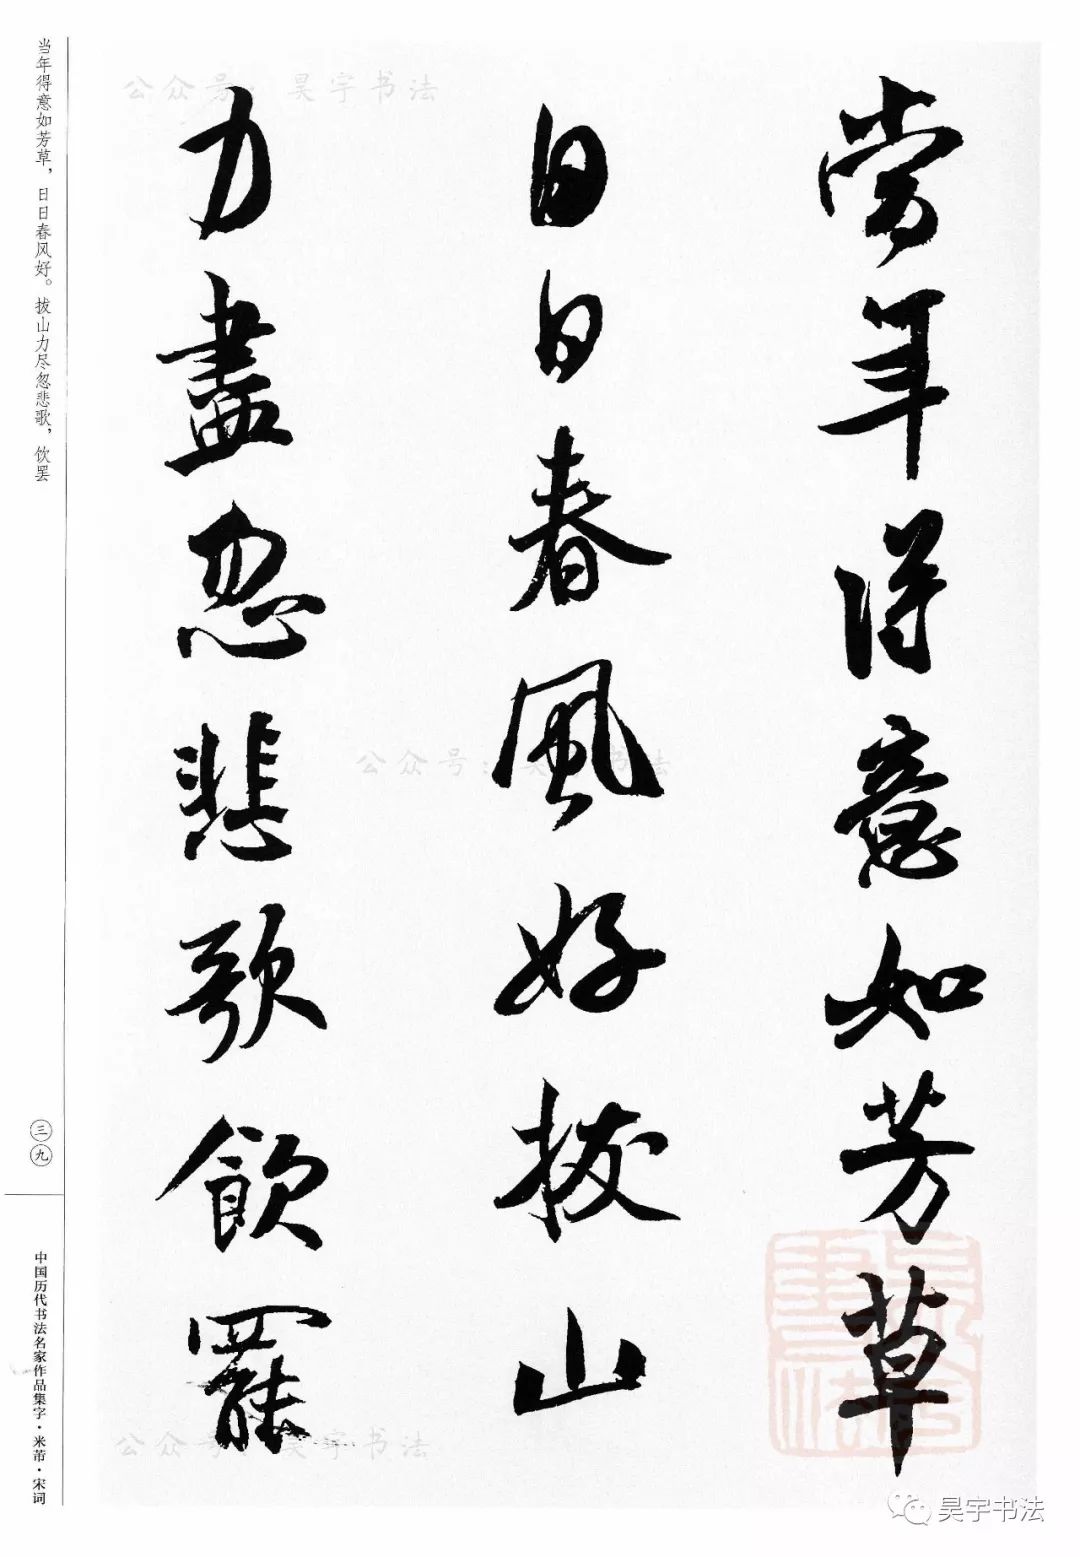 當年得意如芳草
日日春風好拔山
力盡忽悲歌飲罷
当年得意如芳草，日日春风好。拔山力尽忽悲歌，饮罢
三九
中国历代书法名家作品集字·米芾·宋词
公众号：昊宇书法
公众号：昊宇书法
公众号：昊宇书法
昊宇书法